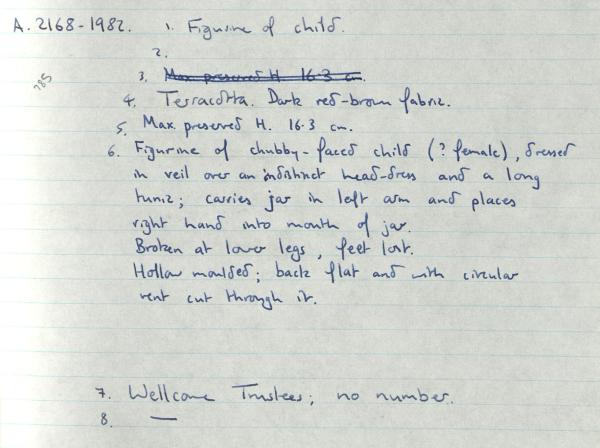 A. 2168-1982. 1. Figurine of child.
2.
3. Max preserved H. 16.3 cm.
785
4. Terracotta. Dark red-brown fabric.
5. Max. preserved H. 16.3 cm.
6. Figurine of chubby-faced child (? female), dressed
in veil over an indistinct head-dress and a long
tunic; carries jar in left arm and places
right hand into mouth of jar.
Broken at lower legs, feet lost.
Hollow moulded; back flat and with circular
vent cut through it.
7. Wellcome Trustees; no number.
8. —